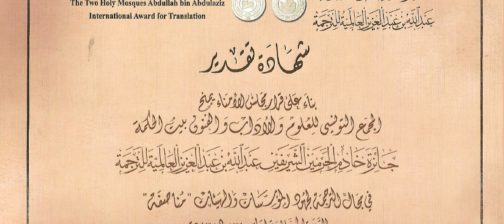 The Two Holy Mosques Abdullah bin Abdulaziz
International Award for Translation
عبدالله بن عبدالعزيز العالمية للترجمة
شهادة تقدير
بناء على قرار مجلس الأمناء بمنح
المجمع التونسي للعلوم والآداب والفنون بيت الحكمة
جائزة خادم الحرمين الشريفين عبدالله بن عبدالعزيز العالمية للترجمة
في مجال الترجمة لجهود المؤسسات والهيئات "مناصفة"